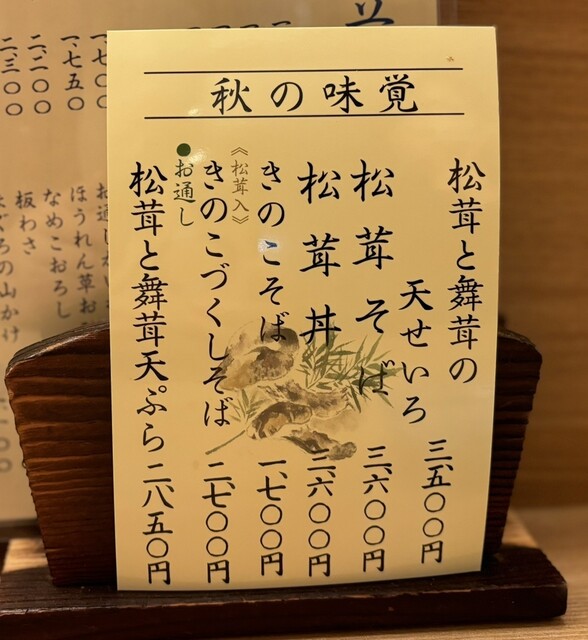 秋の味覚
松茸と舞茸の
天せいろ 三、五〇〇円
松茸そば 三、六〇〇円
松茸丼 三、六〇〇円
きのこそば 一、七〇〇円
《松茸入》
きのこづくしそば 二、七〇〇円
●お通し
松茸と舞茸天ぷら 二、八五〇円
一、七五〇
二、二〇〇
二、三〇〇
ほうれん草お
なめこおろし
板わさ
まぐろの山かけ